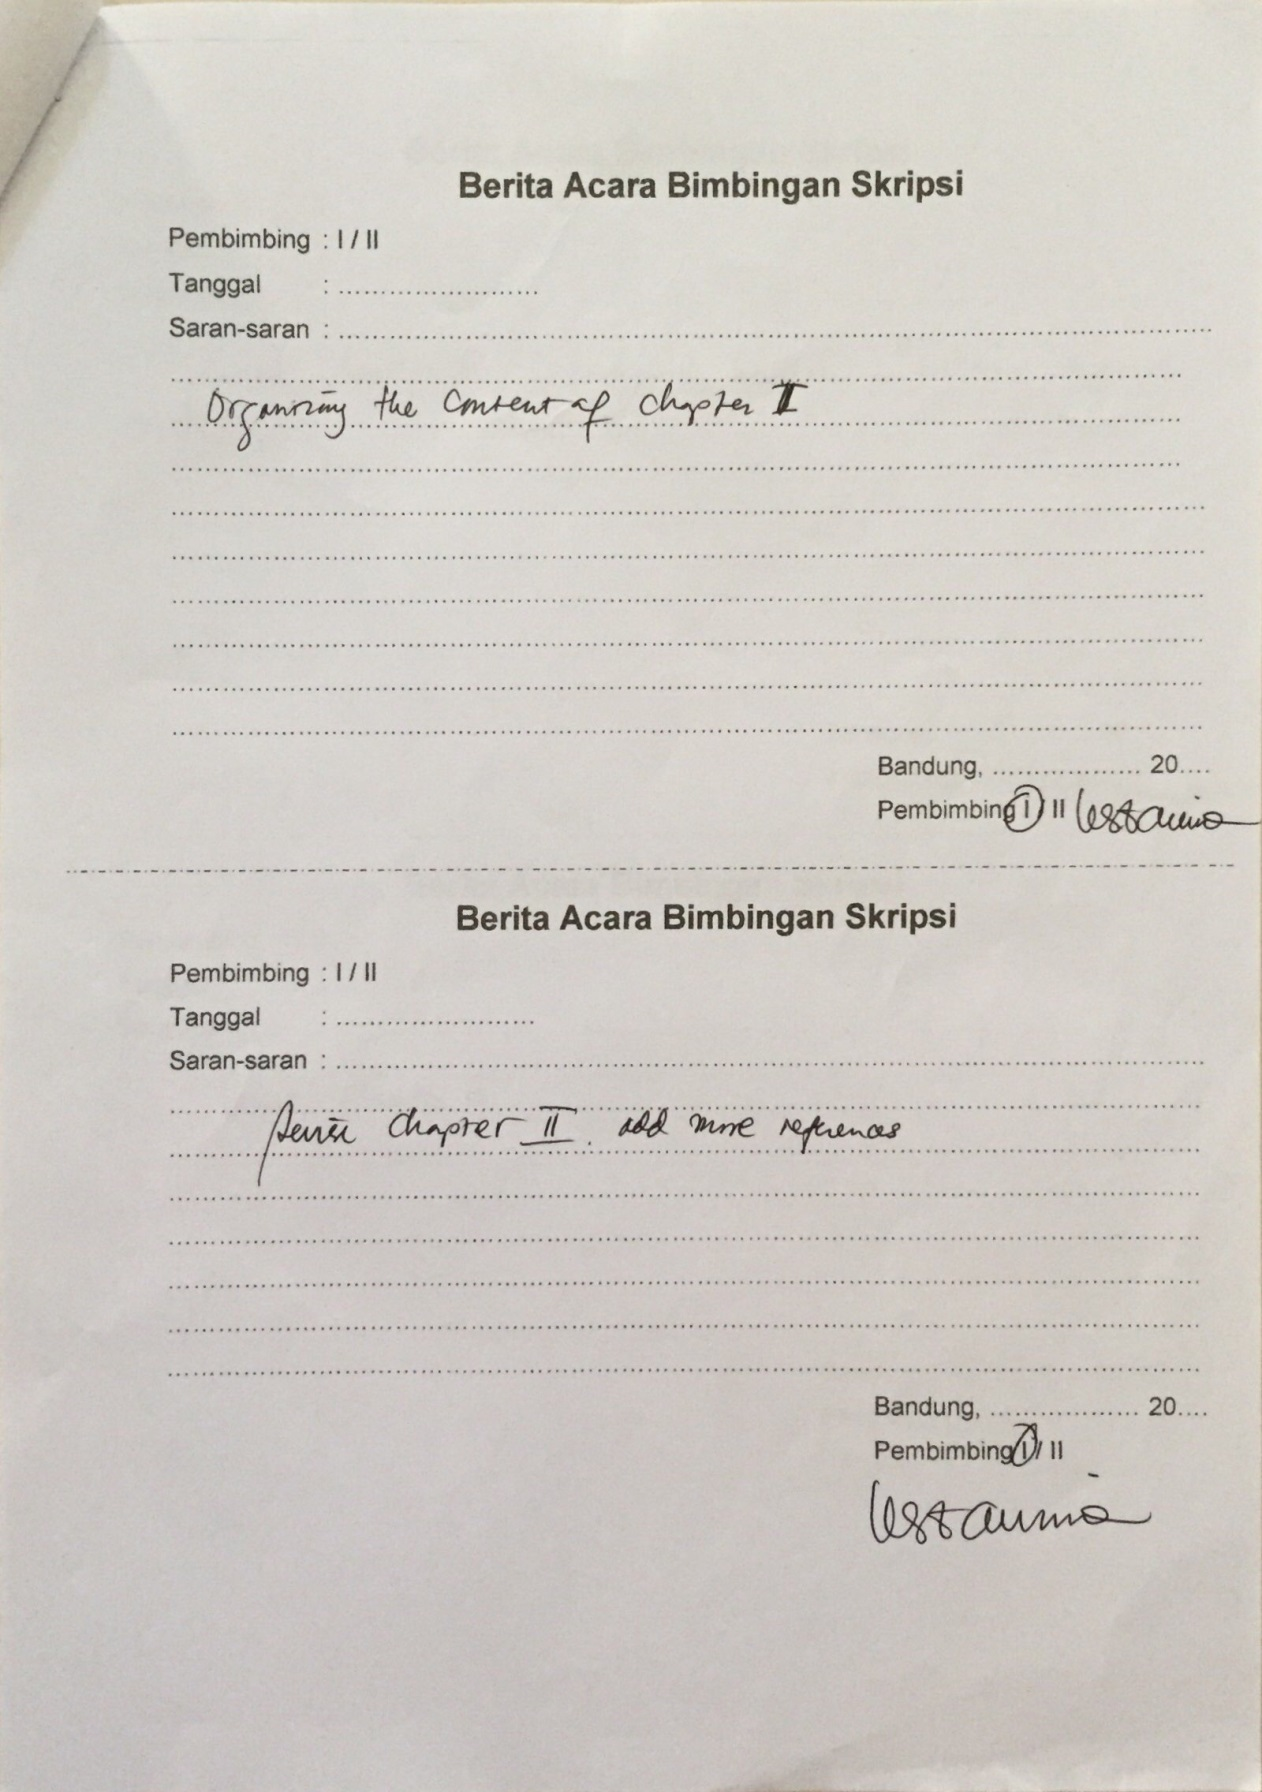 Berita Acara Bimbingan Skripsi
Pembimbing : I / II
Tanggal : ........................
Saran-saran : ........................
Organizing the content of chapter II
Bandung, ................... 20....
Pembimbing I / II
Berita Acara Bimbingan Skripsi
Pembimbing : I / II
Tanggal : ........................
Saran-saran : ........................
Revise Chapter II. add more references
Bandung, ................... 20....
Pembimbing I / II